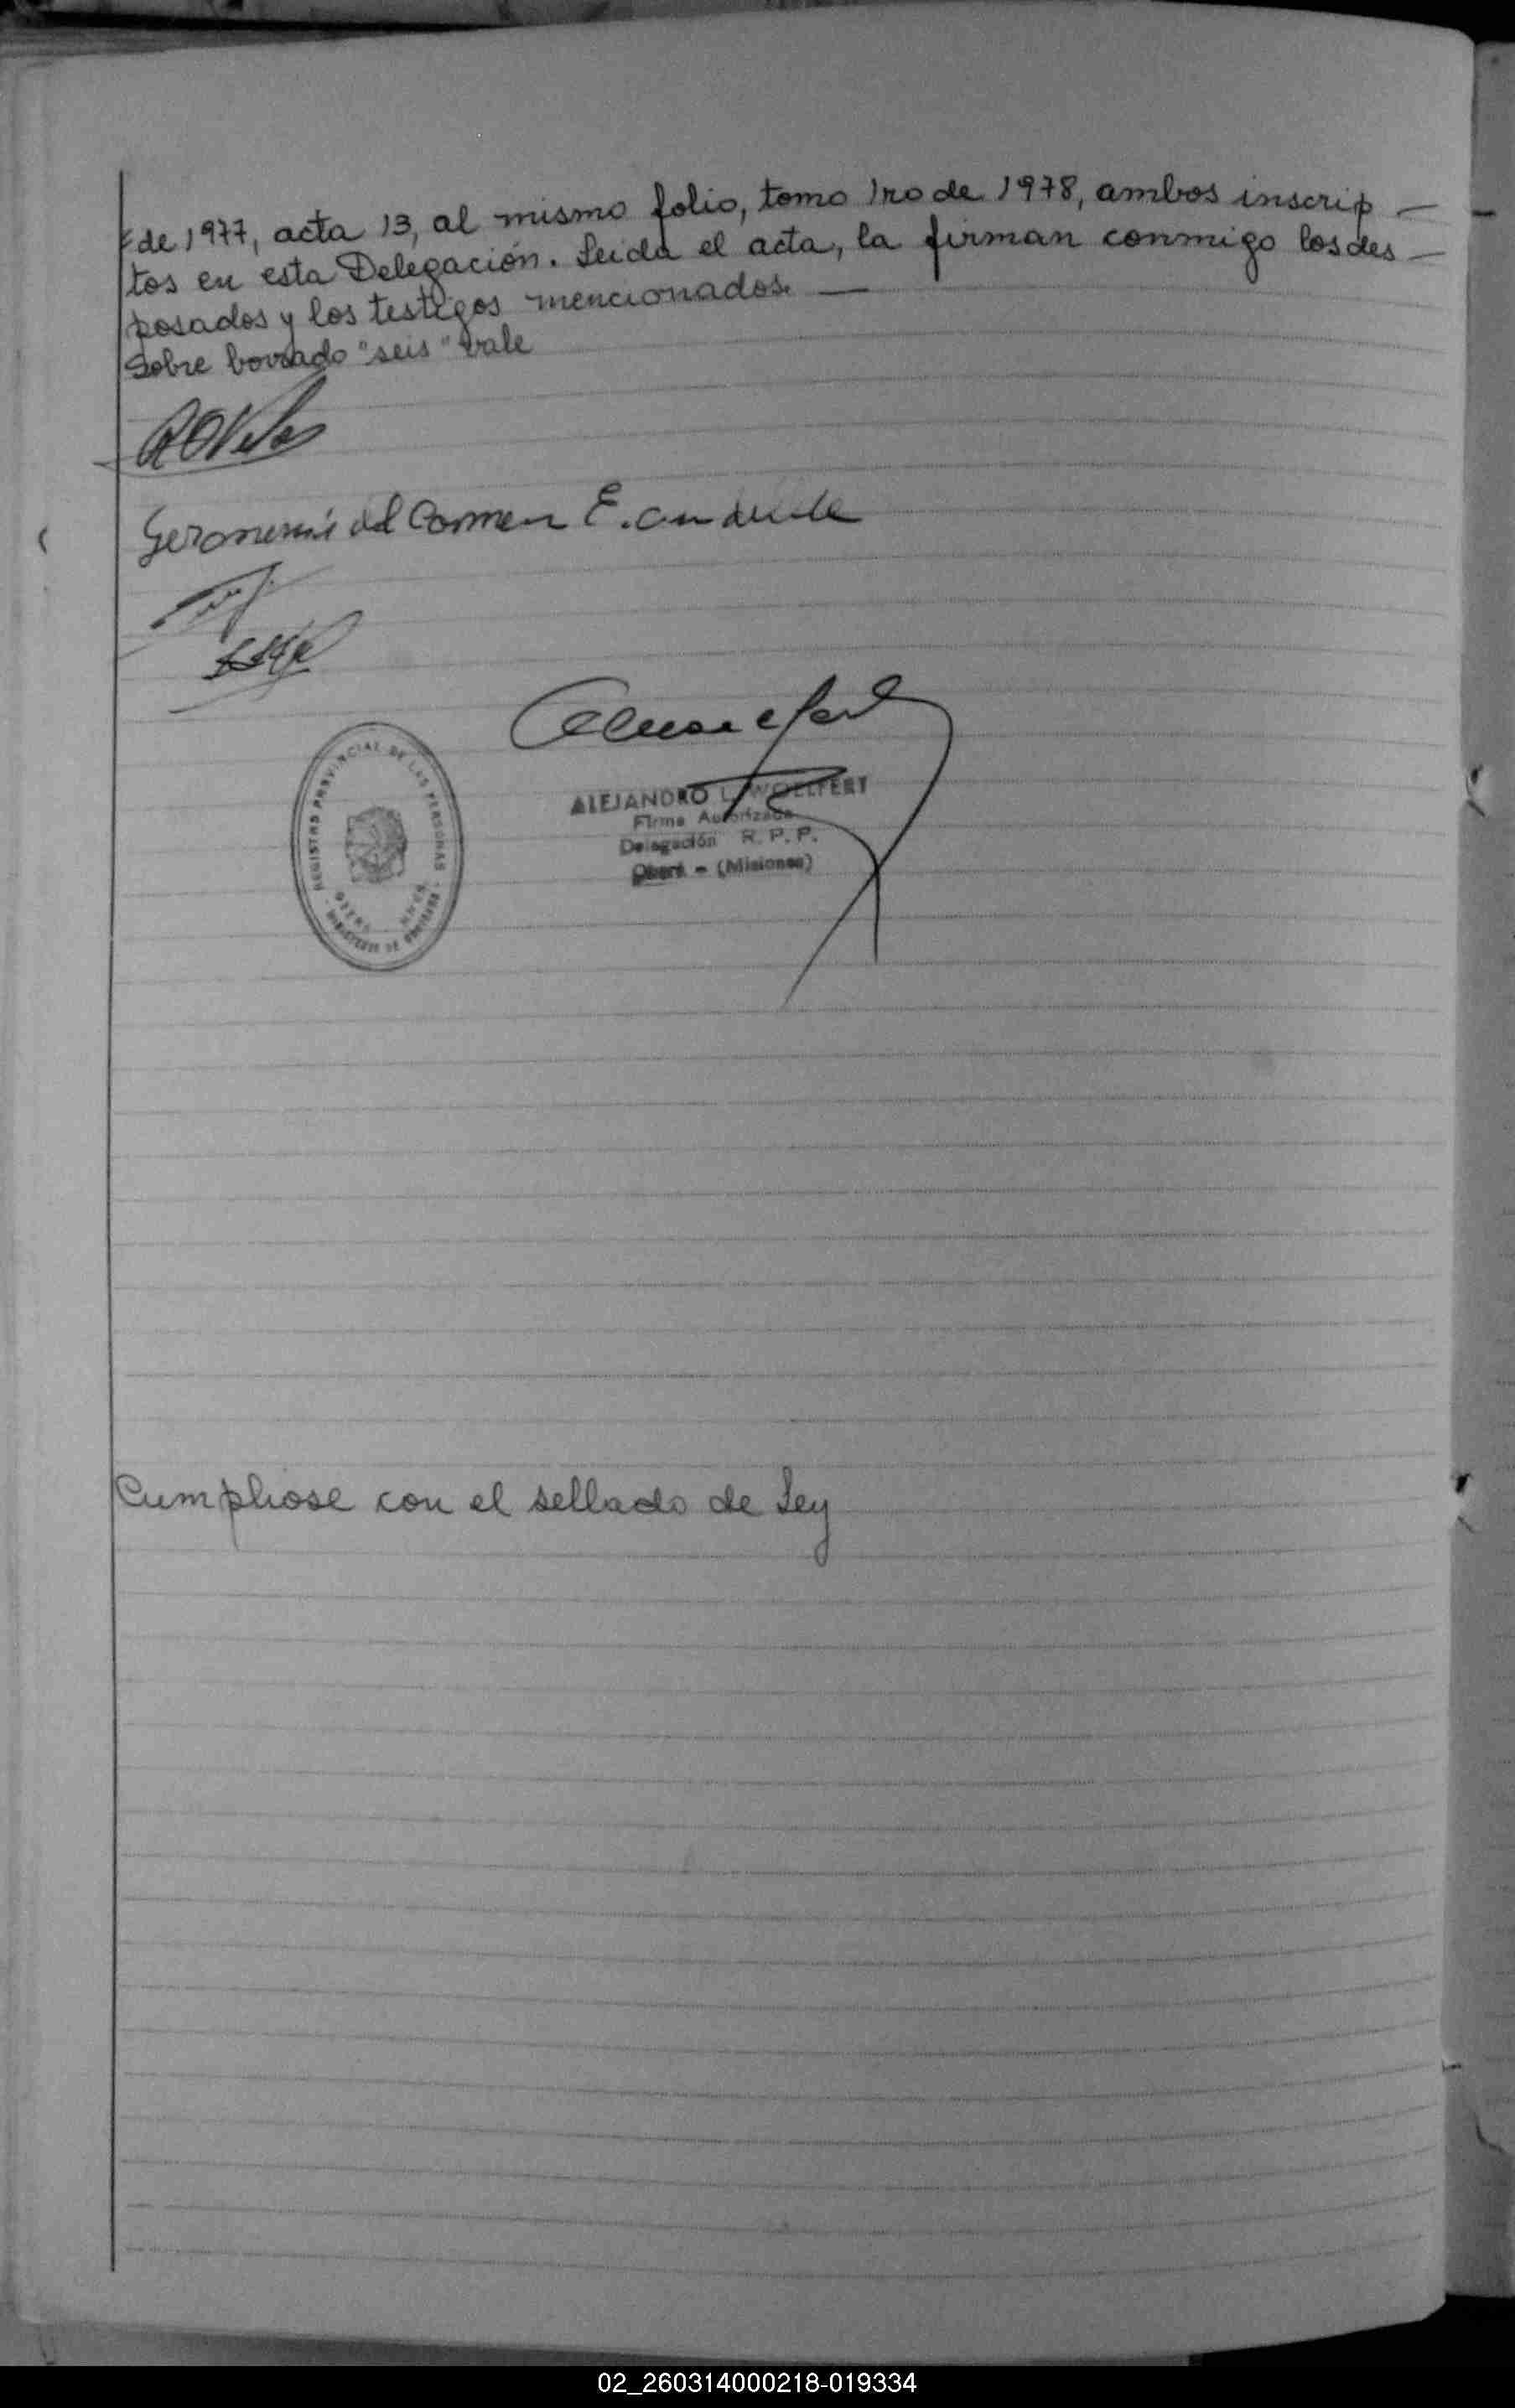 de 1977, acta 13, al mismo folio, tomo 1ro de 1978, ambos inscrip —
tos en esta Delegación. Leida el acta, la firman conmigo los des —
posados y los testigos mencionados. —
Sobre borrado "seis" vale
Geronima del Carmen E.
REGISTRO PROVINCIAL DE LAS PERSONAS
MINISTERIO DE GOBIERNO
ALEJANDRO L. WOELFERT
Firma Autorizada
Delegación R. P. P.
Oberá - (Misiones)
Cumpliose con el sellado de Ley
02_260314000218-019334